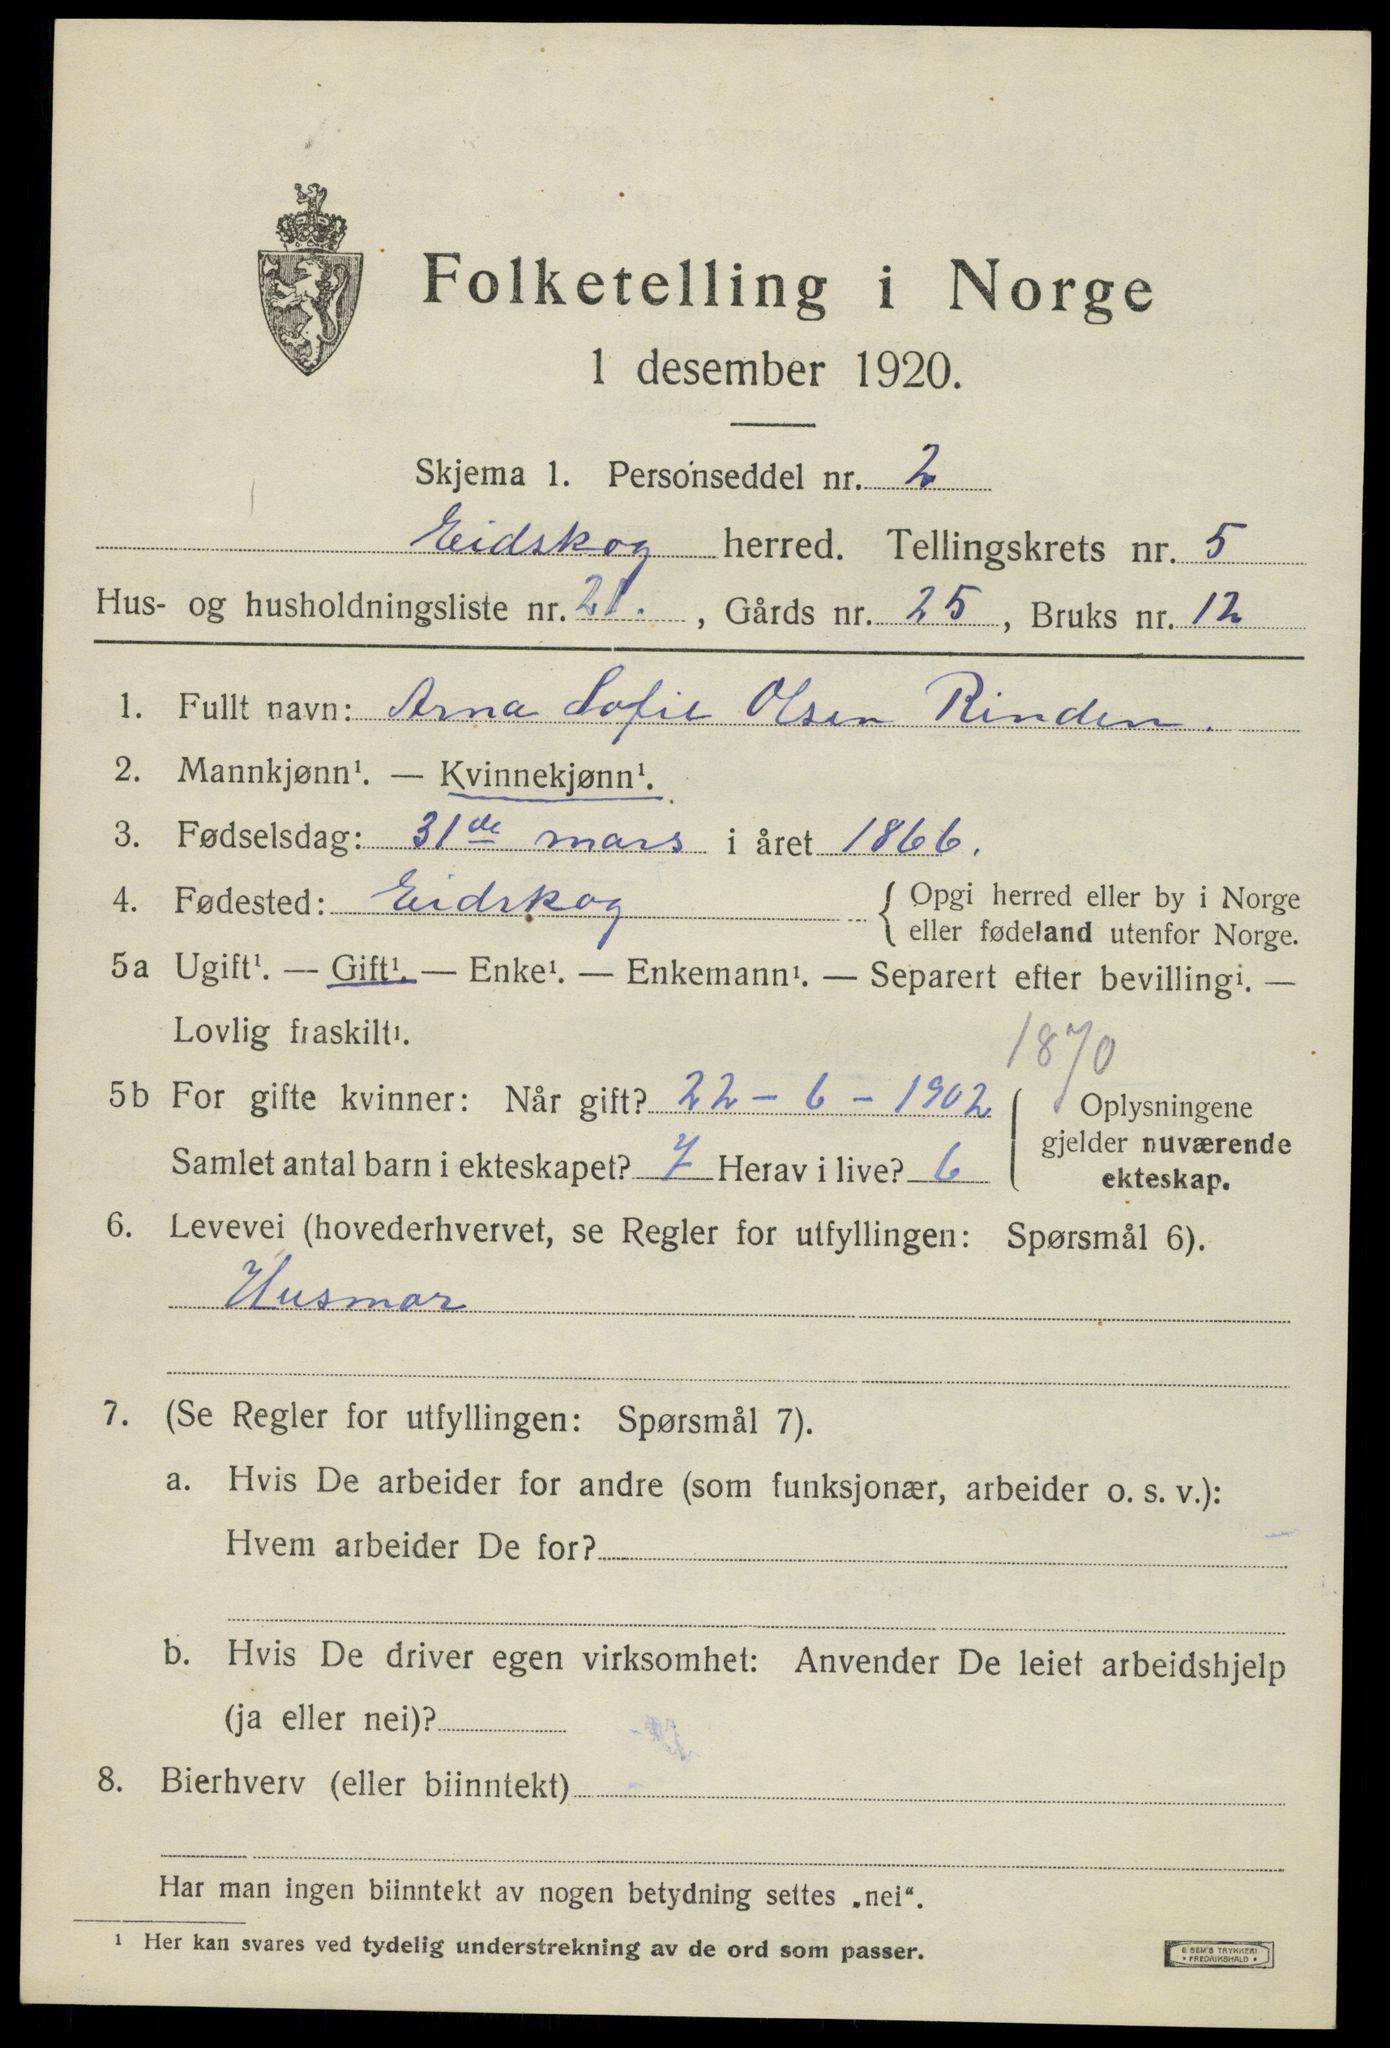 Folketelling i Norge
1 desember 1920.
Skjema 1. Personseddel nr. 2
Eidskog herred. Tellingskrets nr. 5
Hus- og husholdningsliste nr. 21. , Gårds nr. 25 , Bruks nr. 12
1. Fullt navn: Arna Sofie Olsen Rinden.
2. Mannkjønn¹. — Kvinnekjønn¹.
3. Fødselsdag: 31de mars i året 1866.
4. Fødested: Eidskog { Opgi herred eller by i Norge
eller fødeland utenfor Norge.
5a Ugift¹. — Gift¹. — Enke¹. — Enkemann¹. — Separert efter bevilling¹. —
Lovlig fraskilt¹.
1870
5b For gifte kvinner: Når gift? 22 – 6 – 1902 { Oplysningene
gjelder nuværende
Samlet antal barn i ekteskapet? 7 Herav i live? 6
ekteskap.
6. Levevei (hovederhvervet, se Regler for utfyllingen: Spørsmål 6).
Husmor
7. (Se Regler for utfyllingen: Spørsmål 7).
a. Hvis De arbeider for andre (som funksjonær, arbeider o. s. v.):
Hvem arbeider De for?
b. Hvis De driver egen virksomhet: Anvender De leiet arbeidshjelp
(ja eller nei)?
8. Bierhverv (eller biinntekt)
Har man ingen biinntekt av nogen betydning settes „nei“.
¹ Her kan svares ved tydelig understrekning av de ord som passer.
E SEM'S TRYKKERI
• FREDRIKSHALD •